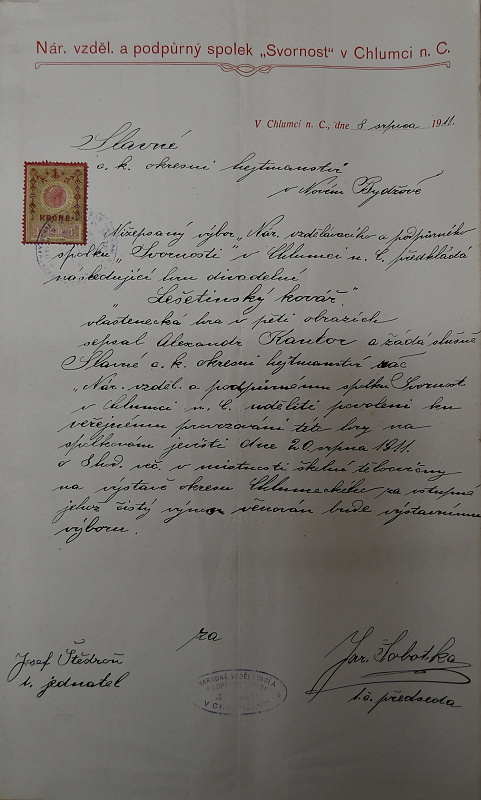 Nár. vzděl. a podpůrný spolek „Svornost" v Chlumci n. C.
V Chlumci n. C., dne 8 srpna 1911.
Slavné
c. k. okresní hejtmanství
v Novém Bydžově
1
KRONE
Nížepsaný výbor „Nár. vzdělávacího a podpůrného
spolku „Svornosti" v Chlumci n. C. předkládá
následující hru divadelní
„Lešetínský kovář"
vlastenecká hra v pěti obrazích
sepsal Alexandr Kantor a žádá slušně
Slavné c. k. okresní hejtmanství ráč
„Nár. vzděl. a podpůrnému spolku Svornost
v Chlumci n. C. uděliti povolení ku
veřejnému provozování této hry na
spolkovém jevišti dne 20 srpna 1911.
o 8 hod. več. v místnosti školní tělocvičny
na výstavě okresu Chlumeckého za vstupné
jehož čistý výnos věnován bude výstavnímu
výboru.
za
Josef Štědroň
t. jednatel
Jar. Sobotka
t. č. předseda
NÁRODNÍ VZDĚLÁVACÍ A
V CHLUMCI